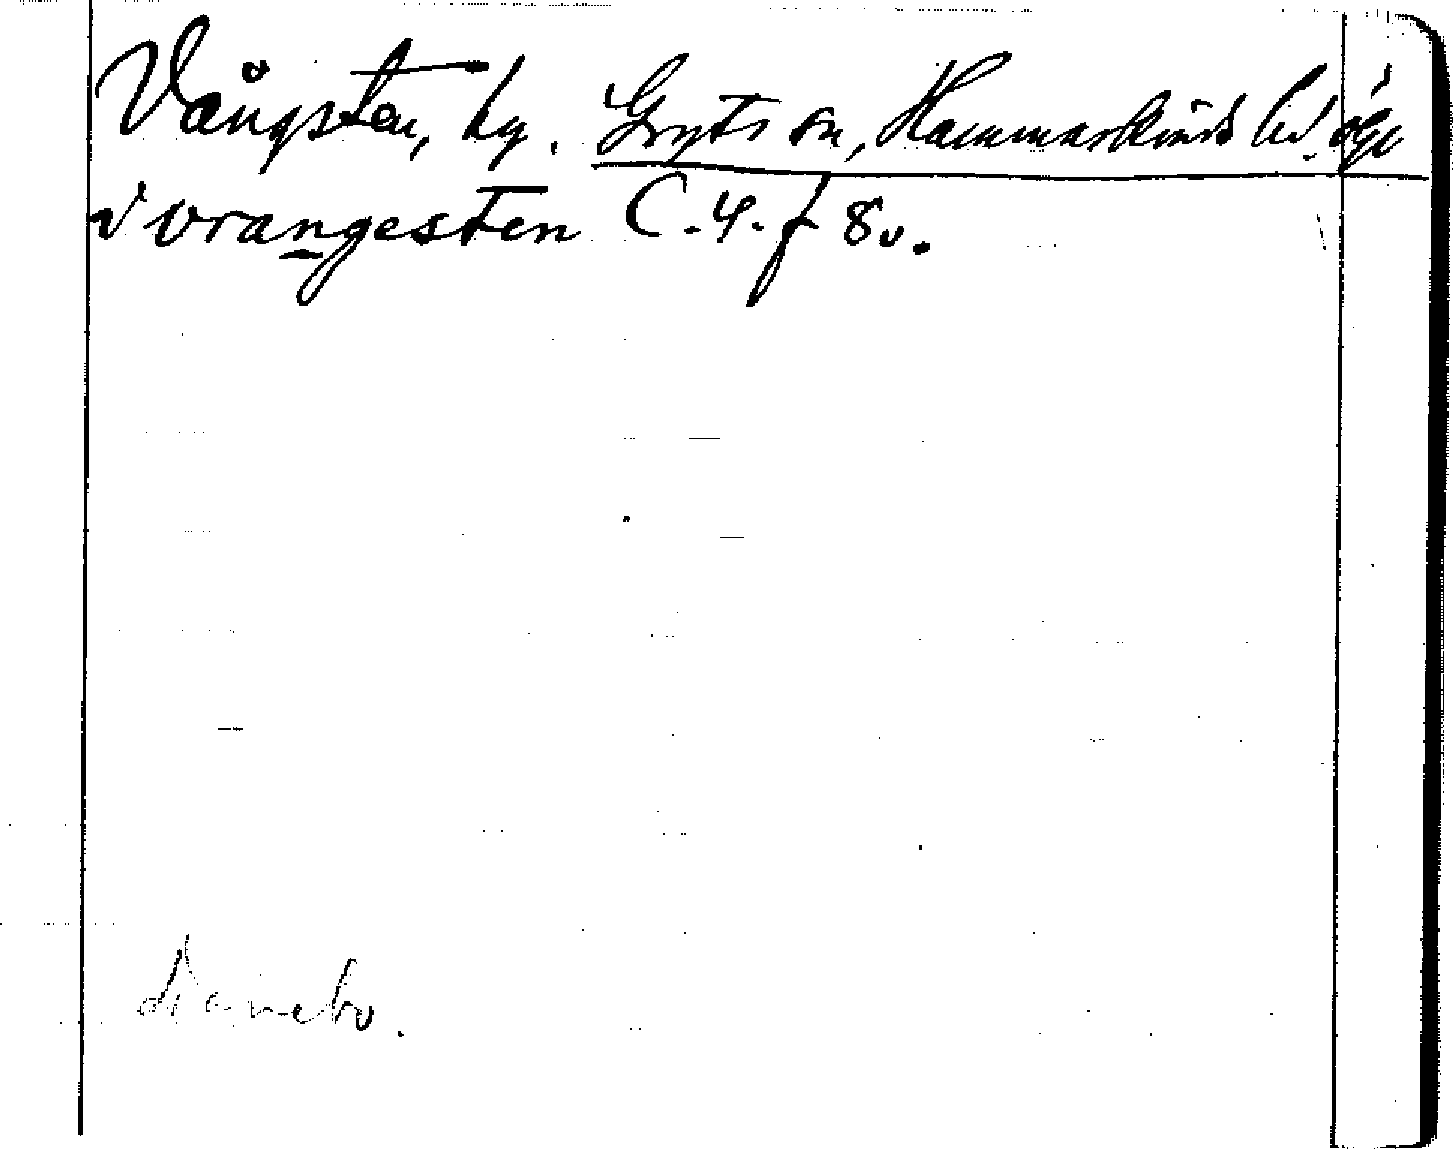 Vångsten, by. Gryts sn, Hammarkinds hd. ögl
i vrangesten C.4.f 8v.